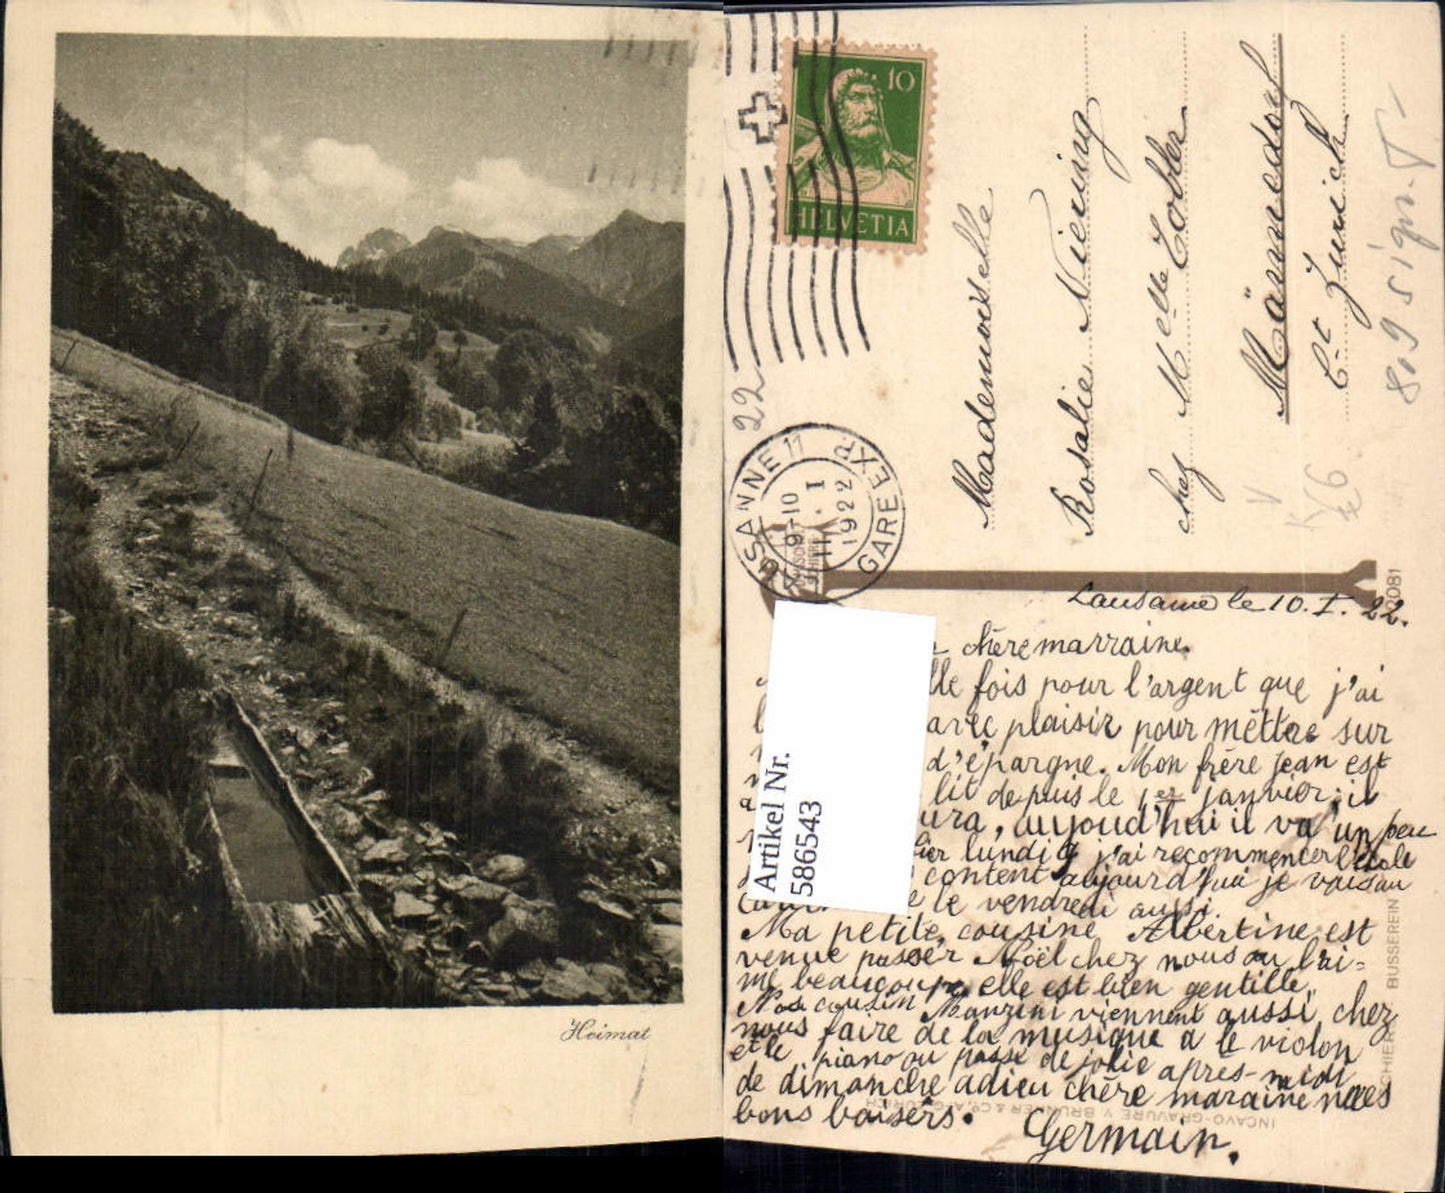 Heimat
10
HELVETIA
22
LAUSANNE 11
GARE EXP.
9-10
11.I
1922
Mademoiselle
Rosalie
chez Melle Tobler
Männedorf
Ct. Zurich
809 sign. T-
V
Artikel Nr.
586543
Lausanne le 10. I. 22.
chère marraine.
lle fois pour l'argent que j'ai
avec plaisir pour mettre sur
d'épargne. Mon frère jean est
lit depuis le 1er janvier; il
ura, aujoud'hui il va un peu
ier lundi j'ai recommencer l'école
content aujourd'hui je vais au
le vendredi aussi.
Ma petite cousine Albertine est
venue passer Noël chez nous on l'ai=
me beaucoup elle est bien gentille.
Nos cousin Manzini viennent aussi chez
nous faire de la musique à le violon
et le piano ou passe de jolie après-midi
de dimanche adieu chère maraine
bons baisers.
Germain.
2081
BUSSEREIN
SCHIERS
INCAVO-GRAVURE V. BRUNNER & Co. A.G. ZÜRICH